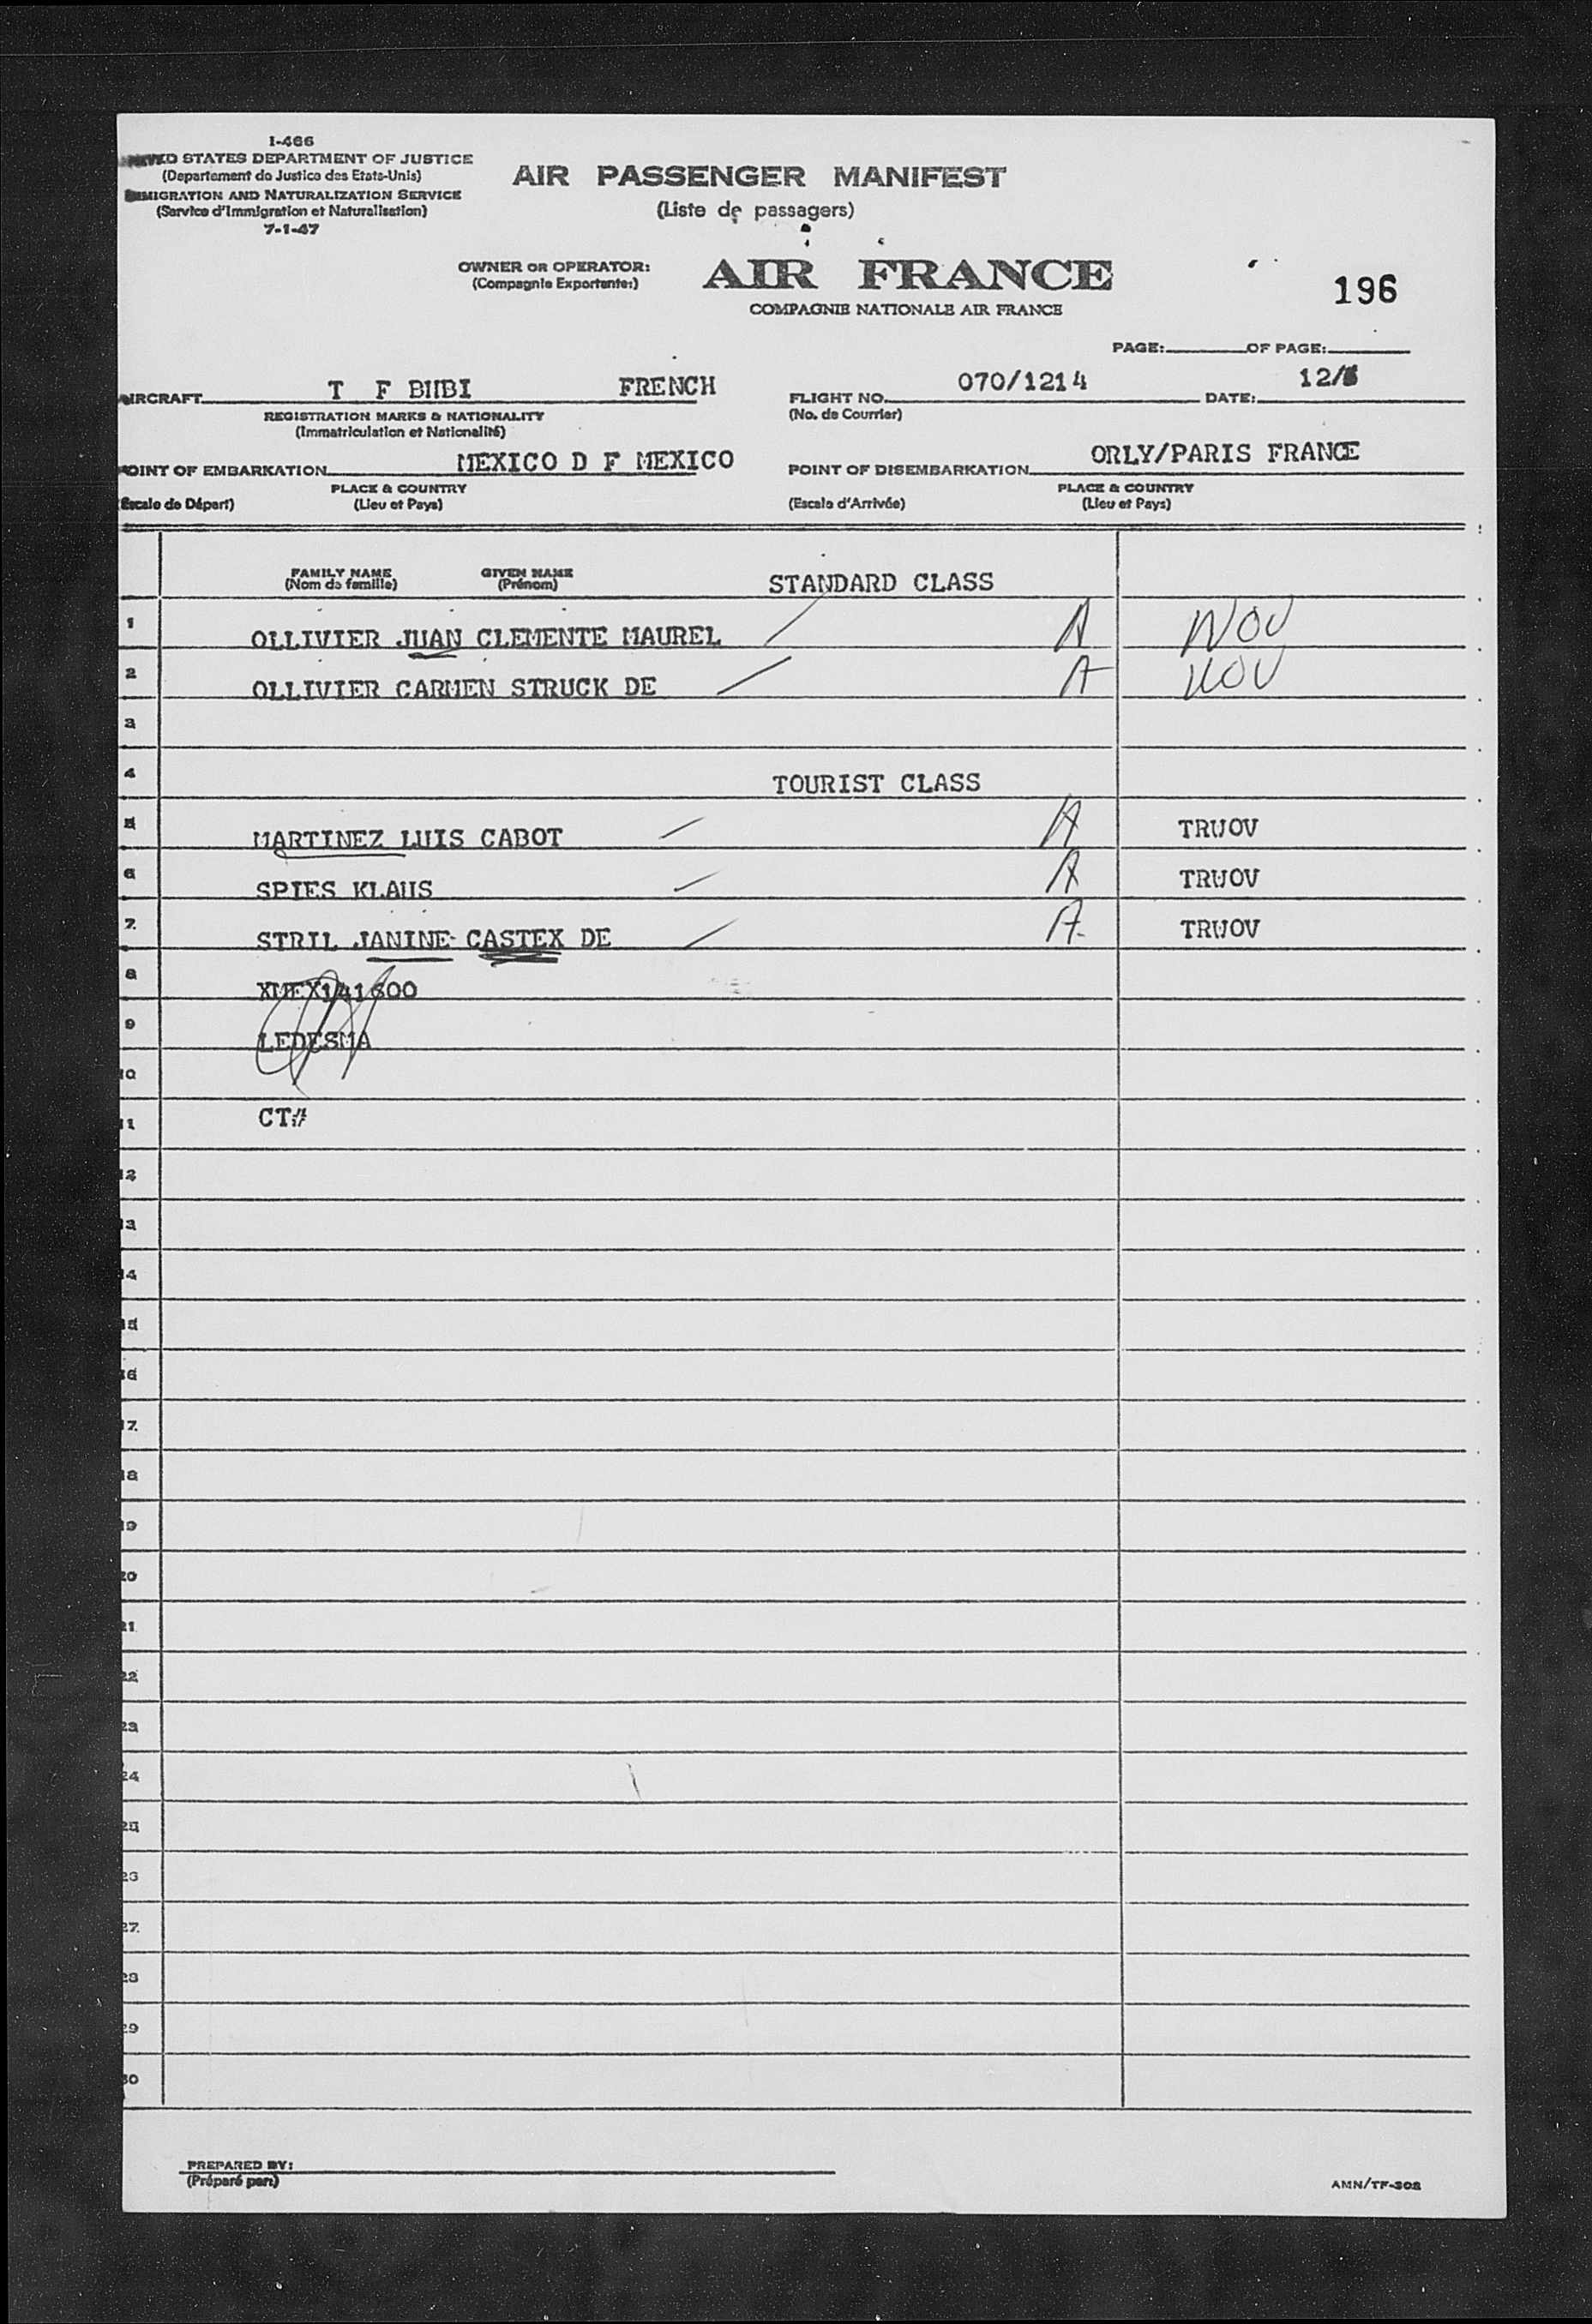 I-466
UNITED STATES DEPARTMENT OF JUSTICE
(Departement de Justice des Etats-Unis)
IMMIGRATION AND NATURALIZATION SERVICE
(Service d'Immigration et Naturalisation)
7-1-47
AIR PASSENGER MANIFEST
(Liste de passagers)
OWNER OR OPERATOR:
(Compagnie Exportante:)
AIR FRANCE
COMPAGNIE NATIONALE AIR FRANCE
196
PAGE: OF PAGE:
AIRCRAFT T F BHBI FRENCH
REGISTRATION MARKS & NATIONALITY
(Immatriculation et Nationalité)
FLIGHT NO. 070/1214 DATE: 12/
(No. de Courrier)
POINT OF EMBARKATION MEXICO D F MEXICO
PLACE & COUNTRY
(Escale de Départ) (Lieu et Pays)
POINT OF DISEMBARKATION ORLY/PARIS FRANCE
PLACE & COUNTRY
(Escale d'Arrivée) (Lieu et Pays)
FAMILY NAME GIVEN NAME
(Nom de famille) (Prénom) STANDARD CLASS
1 OLLIVIER JUAN CLEMENTE MAUREL A WOV
2 OLLIVIER CARMEN STRUCK DE A WOV
3
4 TOURIST CLASS
5 MARTINEZ LUIS CABOT A TRWOV
6 SPIES KLAUS A TRWOV
7 STRIL JANINE CASTEX DE A TRWOV
8 XMEX141600
9 LEDESMA
10
11 CT#
12
13
14
15
16
17
18
19
20
21
22
23
24
25
26
27
28
29
30
PREPARED BY:
(Préparé par:)
AMN/TF-302